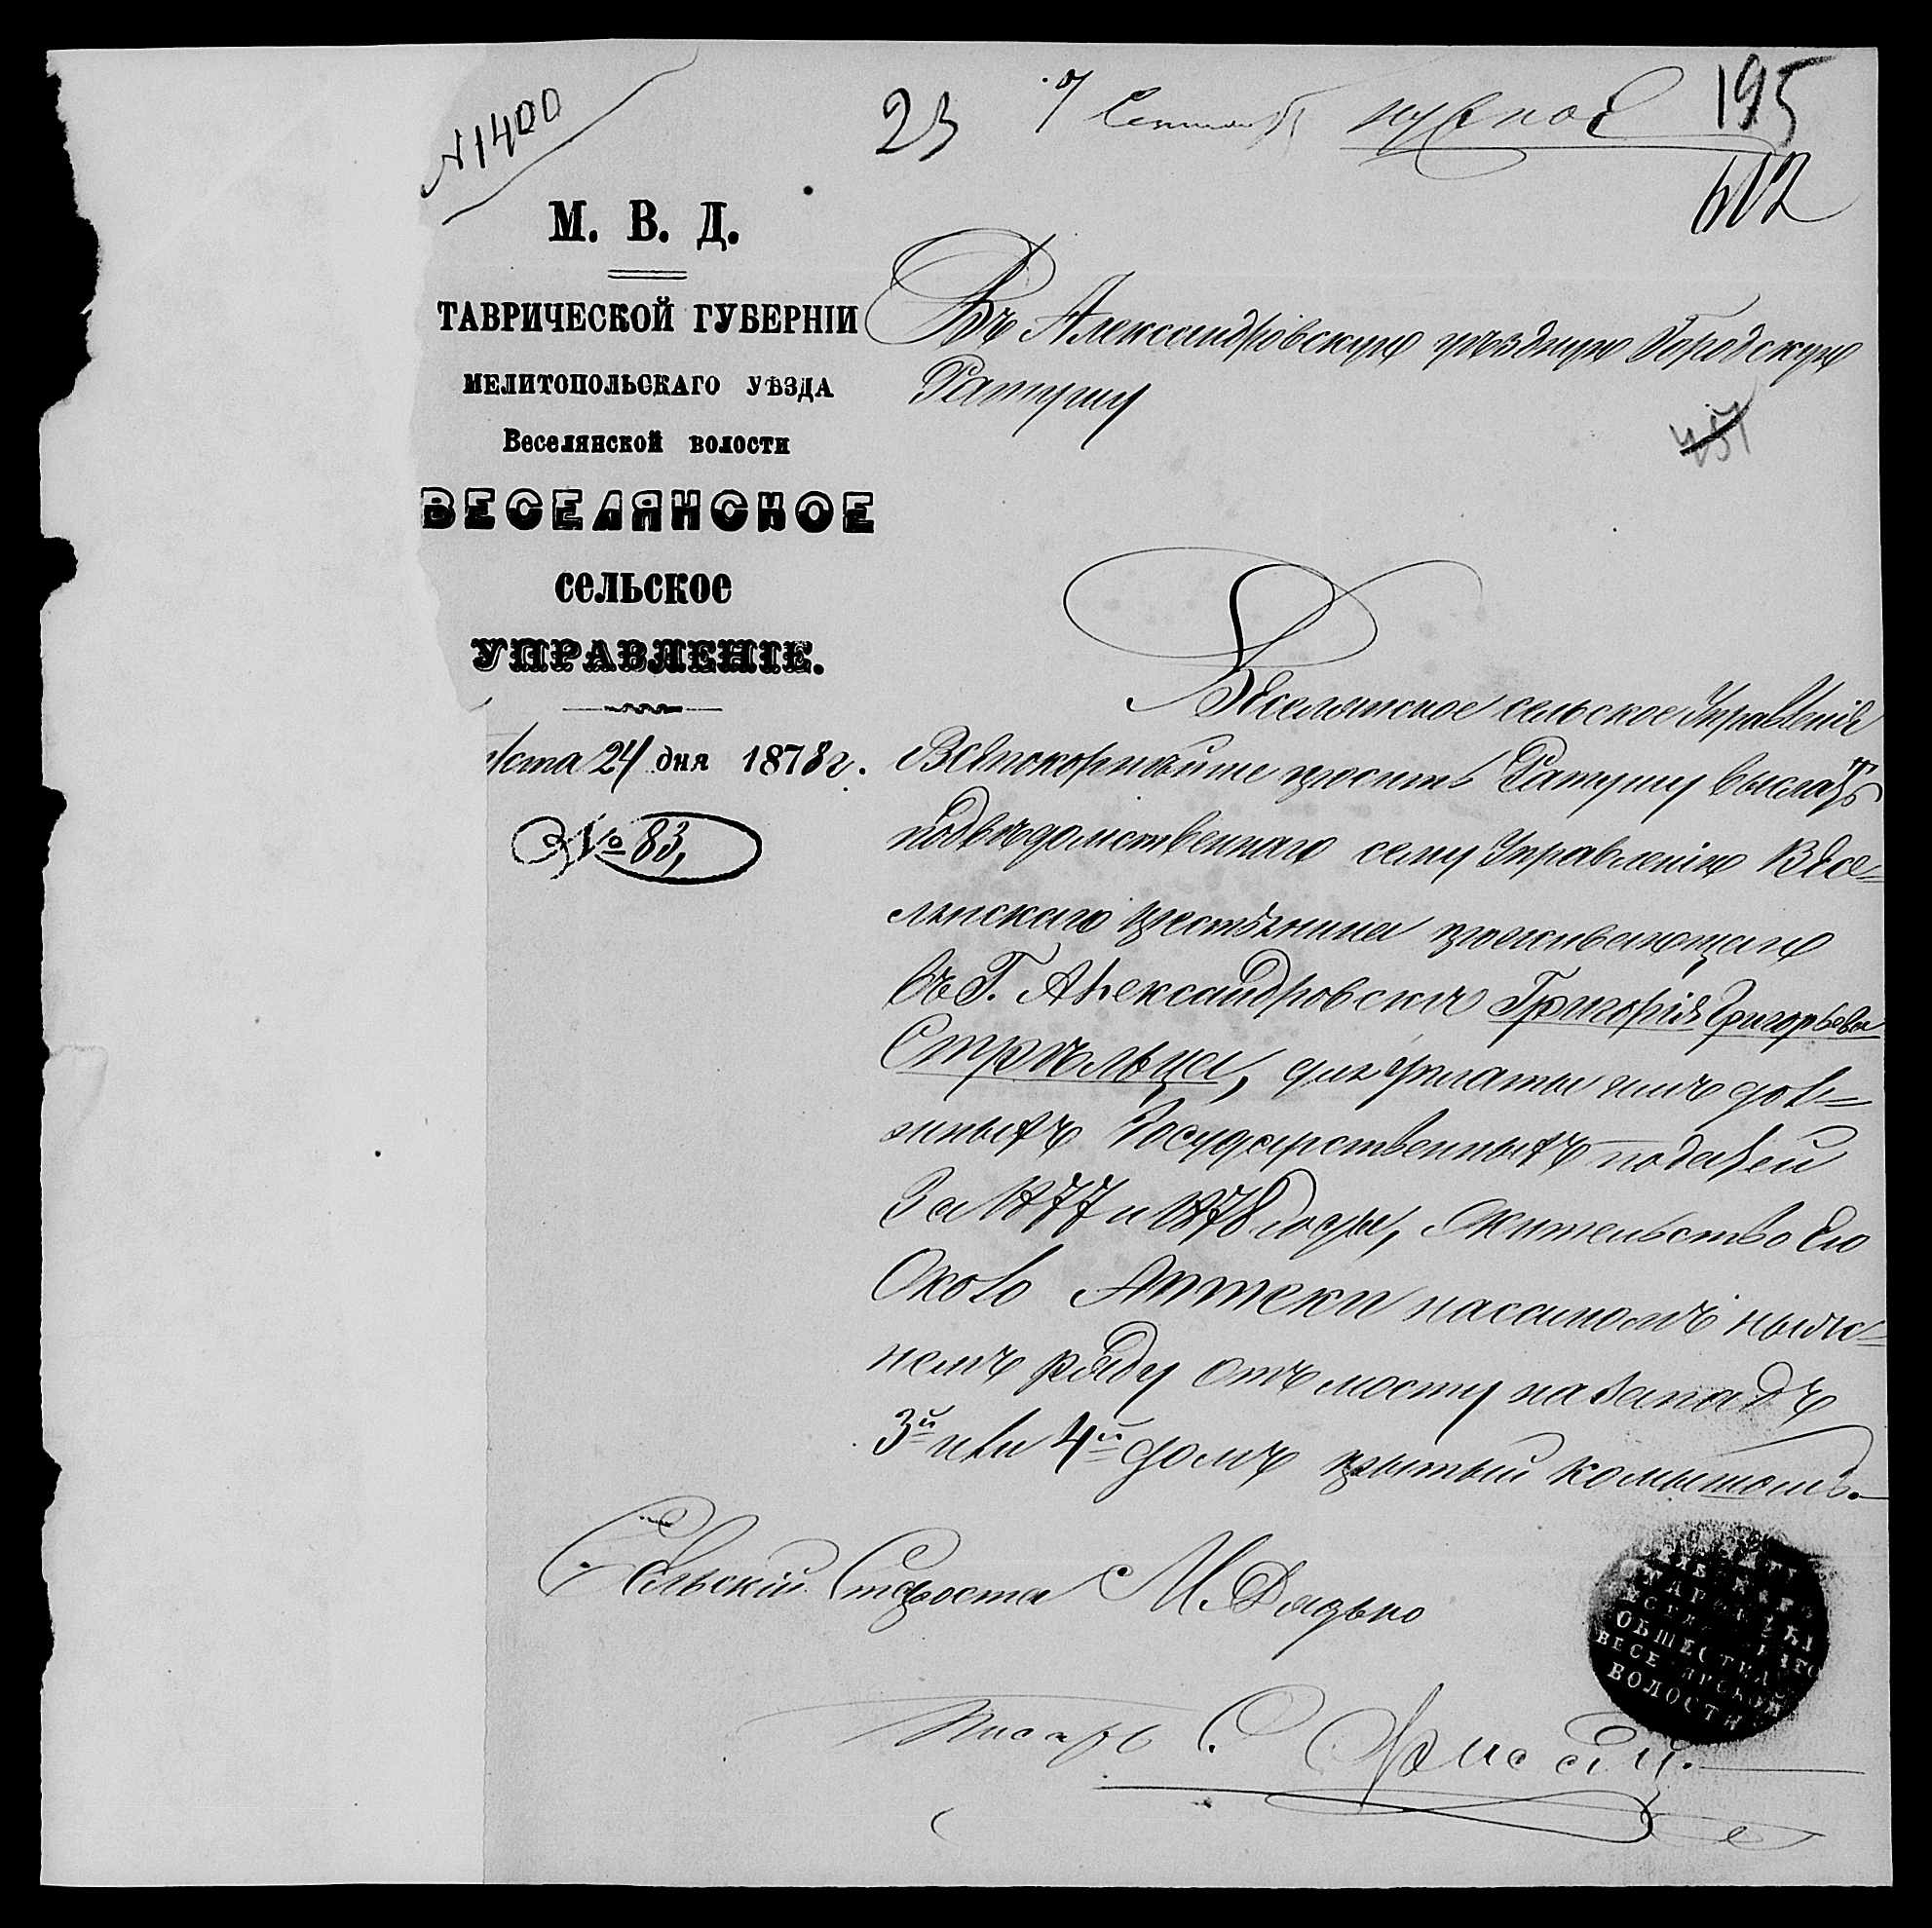 №1400
23
7 Сентяб
195
602
М. В. Д.
ТАВРИЧЕСКОЙ ГУБЕРНІИ
МЕЛИТОПОЛЬСКАГО УѢЗДА
Веселянской волости
ВЕСЕЛЯНСКОЕ
СЕЛЬСКОЕ
УПРАВЛЕНІЕ.
уста 24 дня 1878 г.
№ 83,
Въ Александровскую уѣздную Городскую
Ратушу
Веселянское сельское Управленія
Всѣпокорнѣйше просить Ратушу выслать
подвѣдомственнаго сему Управленію Весе=
лянскаго крестьянина проживающаго
въ Г. Александровскѣ Григорія Григорьева
Стрѣльца, для уплаты имъ дол=
жныхъ Государственныхъ податей
За 1877 и 1878 годы, жительство Его
Около Аптеки
ряду отъ мосту на западъ
3й или 4й домъ крытый комышомъ.
Сельскій Староста М. Дядько
Писарь С.
ОБЩЕСТВА
ВЕСЕЛЯНСКОЙ
ВОЛОСТИ